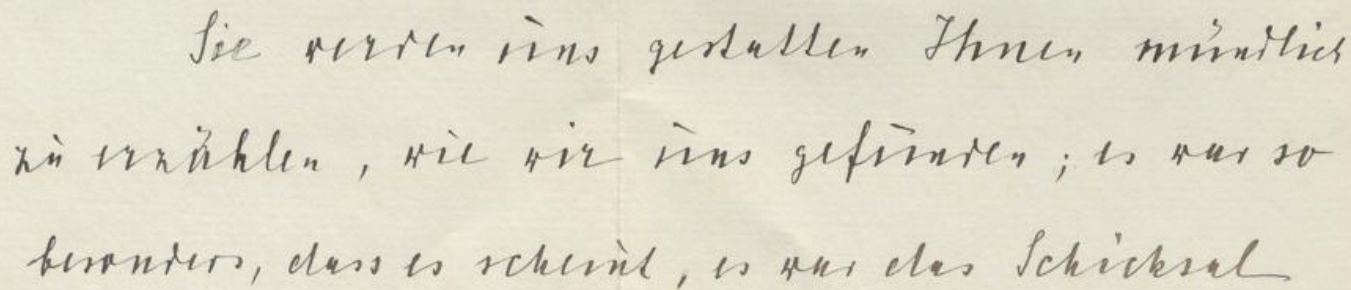 Sie werden uns gestatten Ihnen mündlich
zu erzählen, wie wir uns gefunden; es war so
besonders, dass es scheint, es war das Schicksal